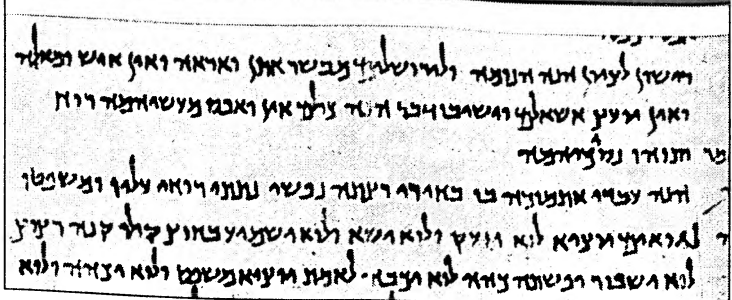 רישון לציון הנה הנומה ולירושלים מבשר אתן ואראה ואין איש ומאלה
ואין יועץ אשאלם וישיבו דבר הנה כולם אין ואפס מעשיהמה רוח
ותוהו נסכיהמה
הנה עבדי אתמוכה בו בחירי רצתה נפשי נתתי רוחי עליו ומשפטו
לגואים יוציא לוא יזעק ולוא ישא ולוא ישמיע בחוץ קולו קנה רצוץ
לוא ישבור ופשתה כהה לוא יכבה לאמת יוציא משפט ולוא יכהה ולוא